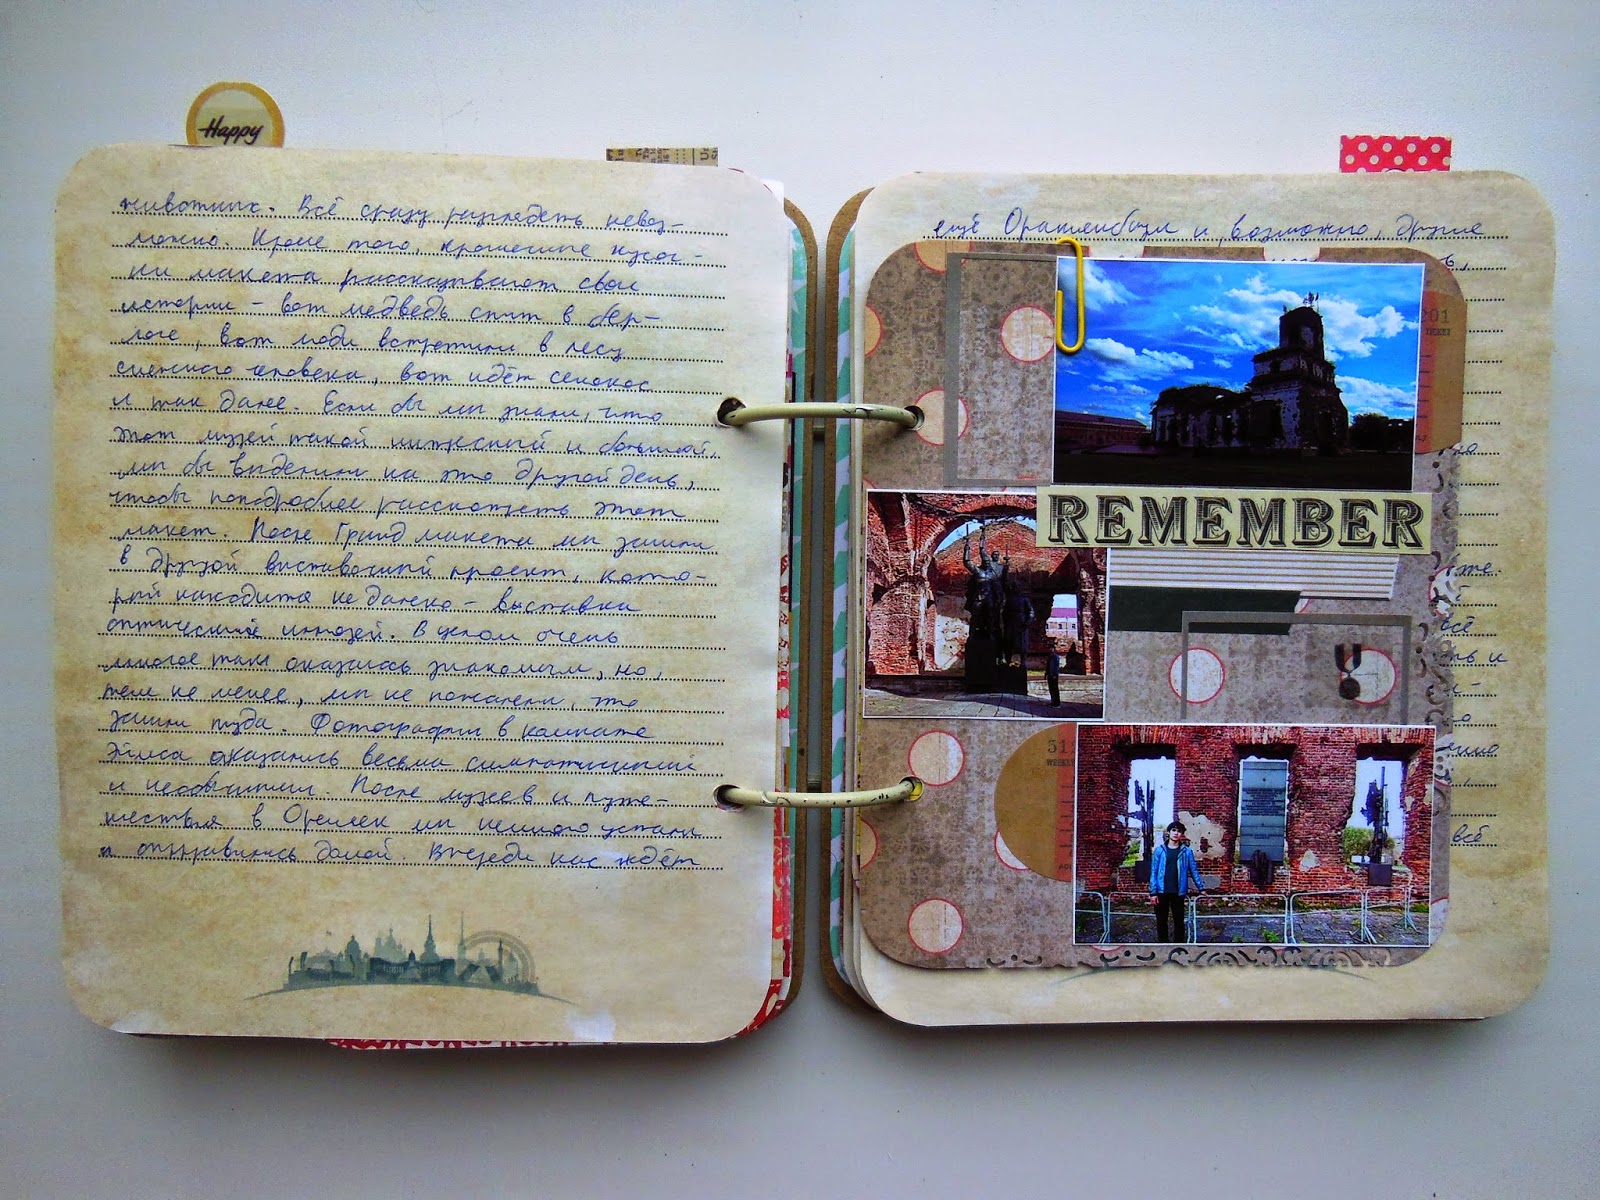 Happy
животных. Всё сразу разглядеть невоз-
можно. Кроме того, крошечные кусоч-
ки макета рассказывают свои
истории – вот медведь спит в бер-
логе, вот люди встретили в лесу
снежного человека, вот идёт сенокос
и так далее. Если бы мы знали, что
этот музей такой интересный и большой,
мы бы выделили на это другой день,
чтобы поподробнее рассмотреть этот
макет. После Гранд макета мы зашли
в другой выставочный проект, кото-
рый находится недалеко – выставка
оптических иллюзий. В целом очень
многое там оказалось знакомым, но,
тем не менее, мы не пожалели, что
зашли туда. Фотографии в комнате
Эймса оказались весьма симпатичными
и необычными. После музеев и путе-
шествия в Орешек мы немного устали
и отправились домой. Впереди нас ждёт
ещё Ораниенбаум и, возможно, другие
201
TICKET
REMEMBER
всё
и
511
WEEKLY
всё